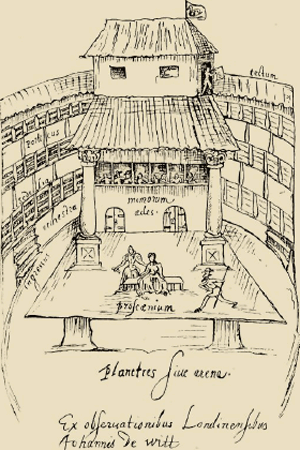 tectum
porticus
orchestra
ingressus
mimorum
ædes
proscænium
planities siue arena.
Ex obseruationibus Londinensibus
Johannis De witt